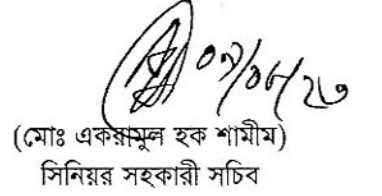 ০৭/০৮/২৩
(মোঃ একরামুল হক শামীম)
সিনিয়র সহকারী সচিব